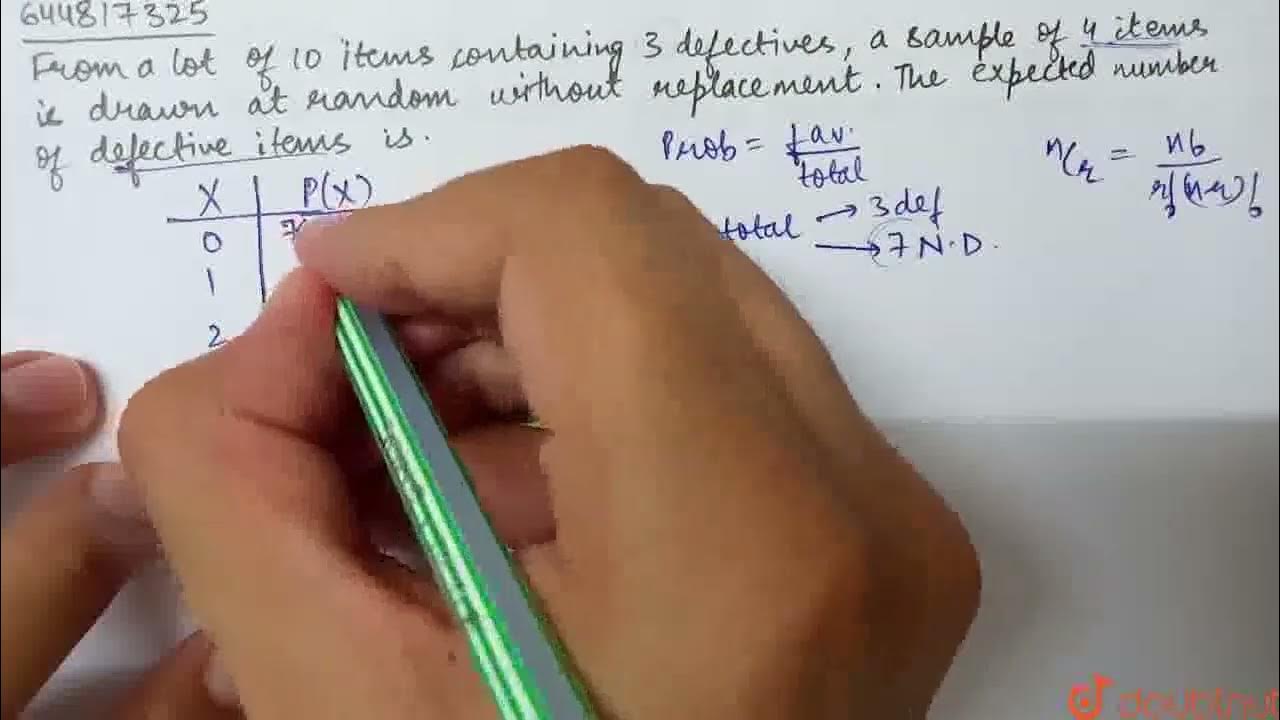 644817325
From a lot of 10 items containing 3 defectives, a sample of 4 items
is drawn at random without replacement. The expected number
of defective items is.
Prob = fav. / total
nCr = n! / r!(n-r)!
X P(X)
0 7
1
2
total → 3 def
→ 7 N.D.
doubtnut